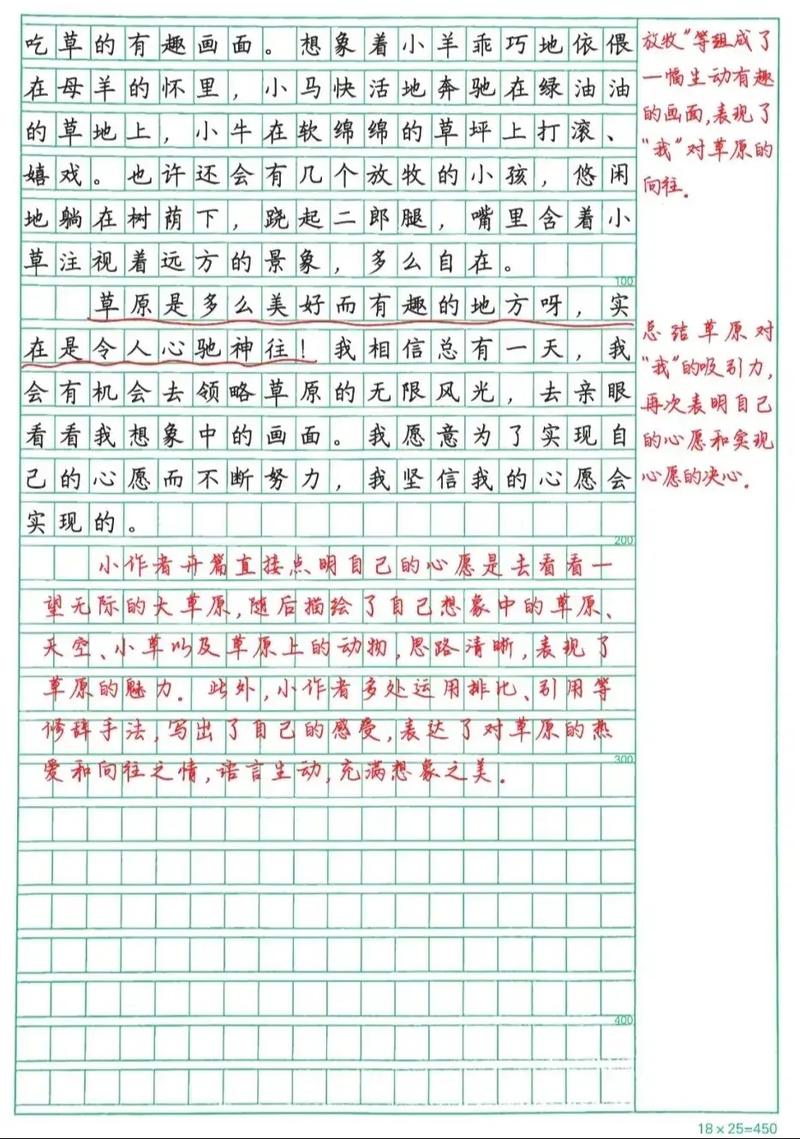 吃草的有趣画面。想象着小羊乖巧地依偎
在母羊的怀里，小马快活地奔驰在绿油油
的草地上，小牛在软绵绵的草坪上打滚、
嬉戏。也许还会有几个放牧的小孩，悠闲
地躺在树荫下，跷起二郎腿，嘴里含着小
草注视着远方的景象，多么自在。
100
草原是多么美好而有趣的地方呀，实
在是令人心驰神往！我相信总有一天，我
会有机会去领略草原的无限风光，去亲眼
看看我想象中的画面。我愿意为了实现自
己的心愿而不断努力，我坚信我的心愿会
实现的。
200
小作者开篇直接点明自己的心愿是去看看一
望无际的大草原，随后描绘了自己想象中的草原、
天空、小草以及草原上的动物，思路清晰，表现了
草原的魅力。此外，小作者多处运用排比、引用等
修辞手法，写出了自己的感受，表达了对草原的热
爱和向往之情，语言生动，充满想象之美。
300
400
放牧”等组成了
一幅生动有趣
的画面，表现了
“我”对草原的
向往。
总结草原对
“我”的吸引力，
再次表明自己
的心愿和实现
心愿的决心。
18×25=450